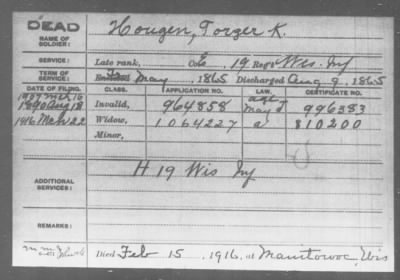 DEAD
NAME OF SOLDIER: Hougen, Torger K.
SERVICE: Late rank, Co. E, 19 Reg't Wis. Inf
TERM OF SERVICE: May, 1865 Discharged Aug 9, 1865
DATE OF FILING. CLASS. APPLICATION NO. LAW. CERTIFICATE NO.
1890 Aug 18 Invalid, 964858 996383
1916 Mch 22 Widow, 1064227 a 810200
Minor,
ADDITIONAL SERVICES: H 19 Wis Inf
REMARKS:
Died Feb 15, 1916, at Manitowoc, Wis